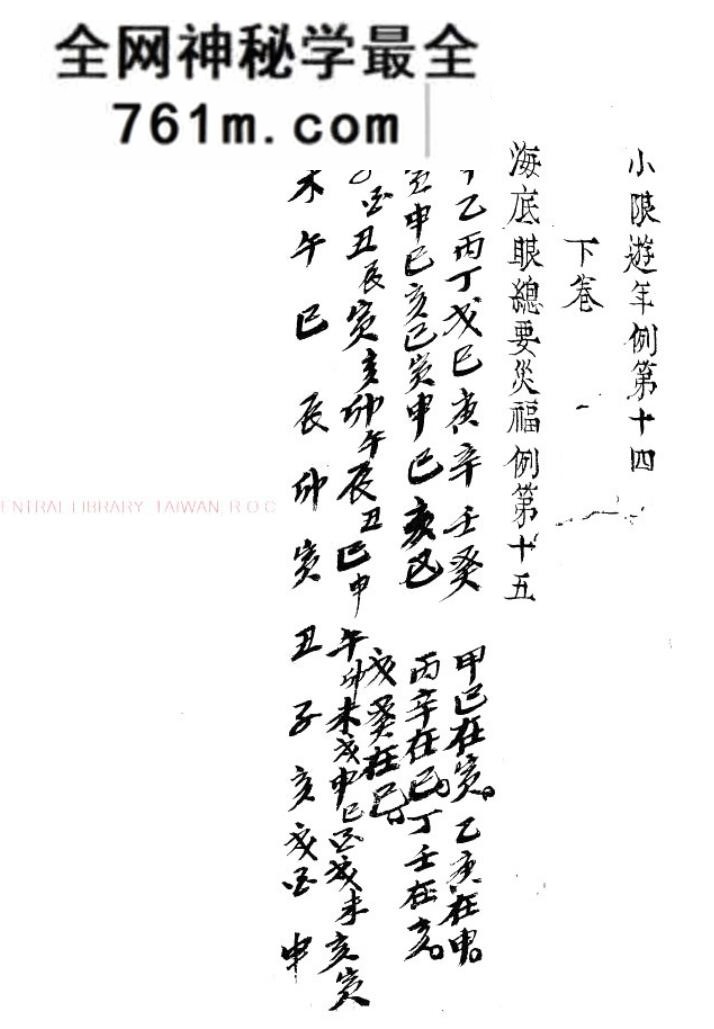 全网神秘学最全
761m.com
小限遊年例第十四
下卷
海底眼總要災福例第十五
乙丙丁戊己庚辛壬癸
甲己在寅。乙庚在申。
申巳亥巳寅申巳亥巳
丙辛在巳。丁壬在亥。
戊癸在巳。
酉丑辰寅亥卯午辰丑巳申午卯未戌申巳酉戌未亥寅
未午巳辰卯寅丑子亥戌酉申
ENTRAL LIBRARY TAIWAN, R O C